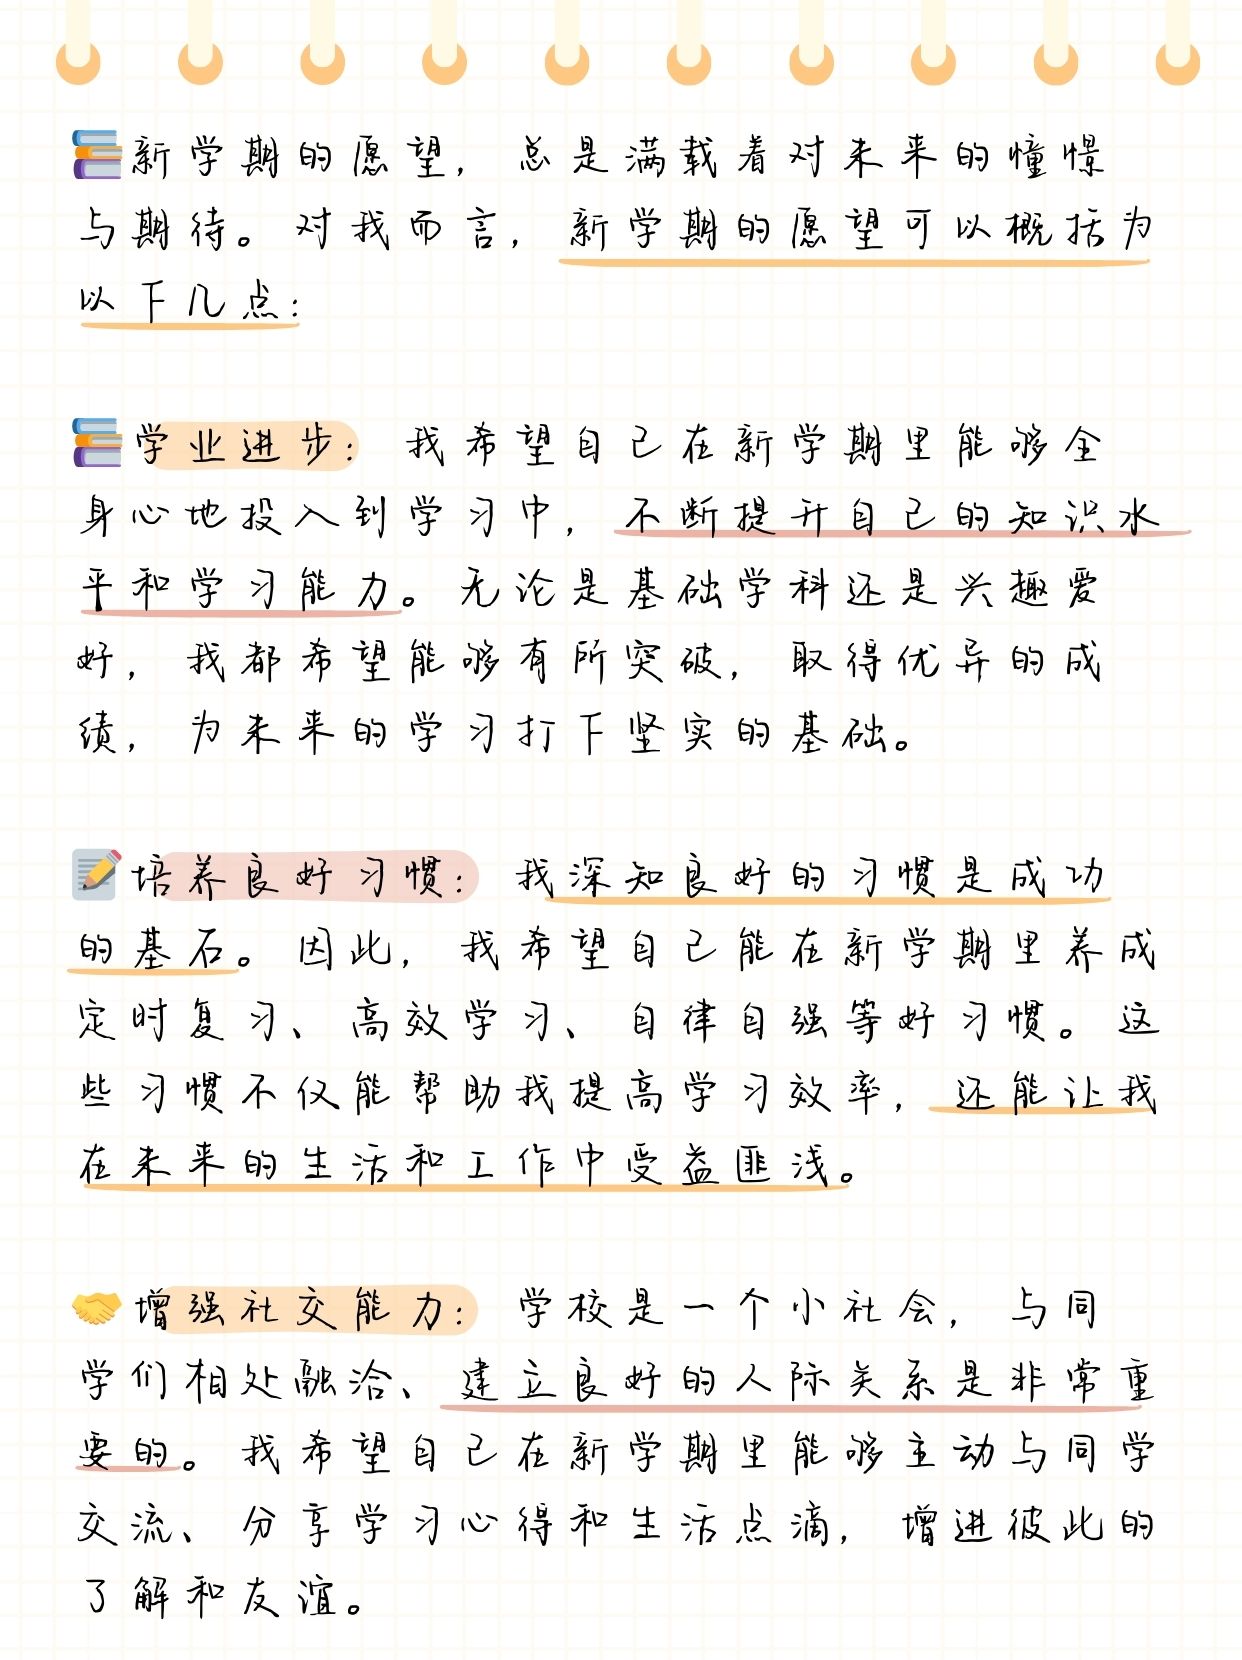 📚新学期的愿望，总是满载着对未来的憧憬
与期待。对我而言，新学期的愿望可以概括为
以下几点：
📚学业进步：我希望自己在新学期里能够全
身心地投入到学习中，不断提升自己的知识水
平和学习能力。无论是基础学科还是兴趣爱
好，我都希望能够有所突破，取得优异的成
绩，为未来的学习打下坚实的基础。
📝培养良好习惯：我深知良好的习惯是成功
的基石。因此，我希望自己能在新学期里养成
定时复习、高效学习、自律自强等好习惯。这
些习惯不仅能帮助我提高学习效率，还能让我
在未来的生活和工作中受益匪浅。
🤝增强社交能力：学校是一个小社会，与同
学们相处融洽、建立良好的人际关系是非常重
要的。我希望自己在新学期里能够主动与同学
交流、分享学习心得和生活点滴，增进彼此的
了解和友谊。